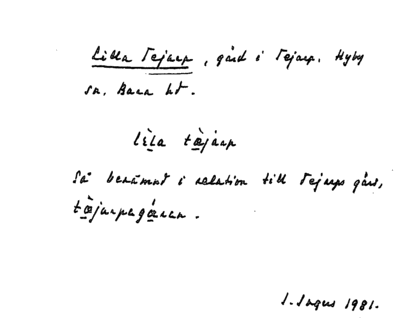 Lilla Tejarp, gård i Tejarp, Hyby
sn. Bara hd.
lèla tæ̀járp
Så benämnd i relation till Tejarps gård,
tæ̀jarpsgáren.
1981.